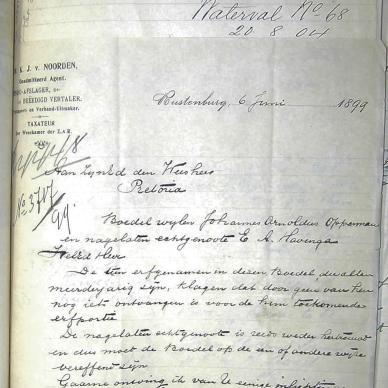 Waterval No 68
20.8.04
K. J. v. NOORDEN,
Geadmitteerd Agent.
AFSLAGER,
BEEDIGD VERTALER,
TAXATEUR
der Weeskamer der Z.A.R.
Rustenburg, 6 Juni 1899
No 3747/99
Aan ZijnEd den Weesheer
Pretoria
Boedel wylen Johannes Arnoldus Opperman
en nagelaten echtgenoote E. A. Havenga
WelEd Heer
De tien erfgenamen in dezen Boedel, die allen
meerderjarig zijn, klagen dat door geen van hen
nog iets ontvangen is voor de hun toekomende
erfportie
De nagelaten echtgenoote is reeds weder hertrouwd
en dus moet de Boedel op de een of andere wijze
vereffend zijn.
Gaarne ontving ik van U eenige inlichting